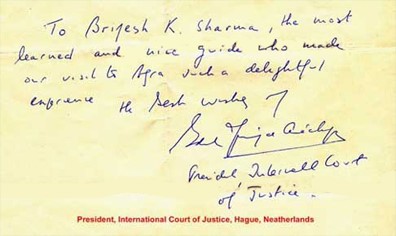 To Brijesh K. Sharma, the most
learned and nice guide who made
our visit to Agra such a delightful
experience the Best wishes of
Court
of Justice.
President, International Court of Justice, Hague, Neatherlands